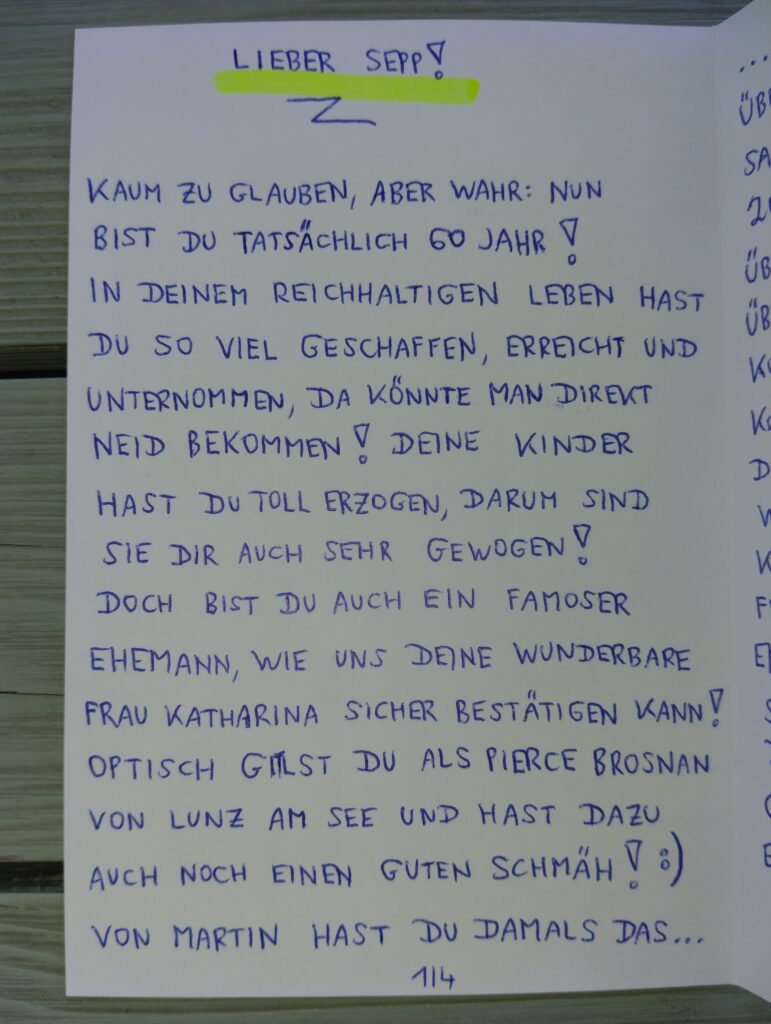 LIEBER SEPP!
KAUM ZU GLAUBEN, ABER WAHR: NUN
BIST DU TATSÄCHLICH 60 JAHR!
IN DEINEM REICHHALTIGEN LEBEN HAST
DU SO VIEL GESCHAFFEN, ERREICHT UND
UNTERNOMMEN, DA KÖNNTE MAN DIREKT
NEID BEKOMMEN! DEINE KINDER
HAST DU TOLL ERZOGEN, DARUM SIND
SIE DIR AUCH SEHR GEWOGEN!
DOCH BIST DU AUCH EIN FAMOSER
EHEMANN, WIE UNS DEINE WUNDERBARE
FRAU KATHARINA SICHER BESTÄTIGEN KANN!
OPTISCH GILST DU ALS PIERCE BROSNAN
VON LUNZ AM SEE UND HAST DAZU
AUCH NOCH EINEN GUTEN SCHMÄH! :)
VON MARTIN HAST DU DAMALS DAS...
1/4